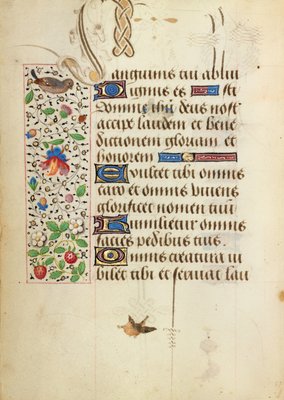 Sanguinis tui ablui
Dignus es
domine ihu deus nost
accipe laudem et bene
dictionem gloriam et
honorem
Exultet tibi omnis
caro et omnis vivens
glorificet nomen tuū
Humilietur omnis
facies pedibus tuis.
Omnis creatura iu
bilet tibi et serviat lau